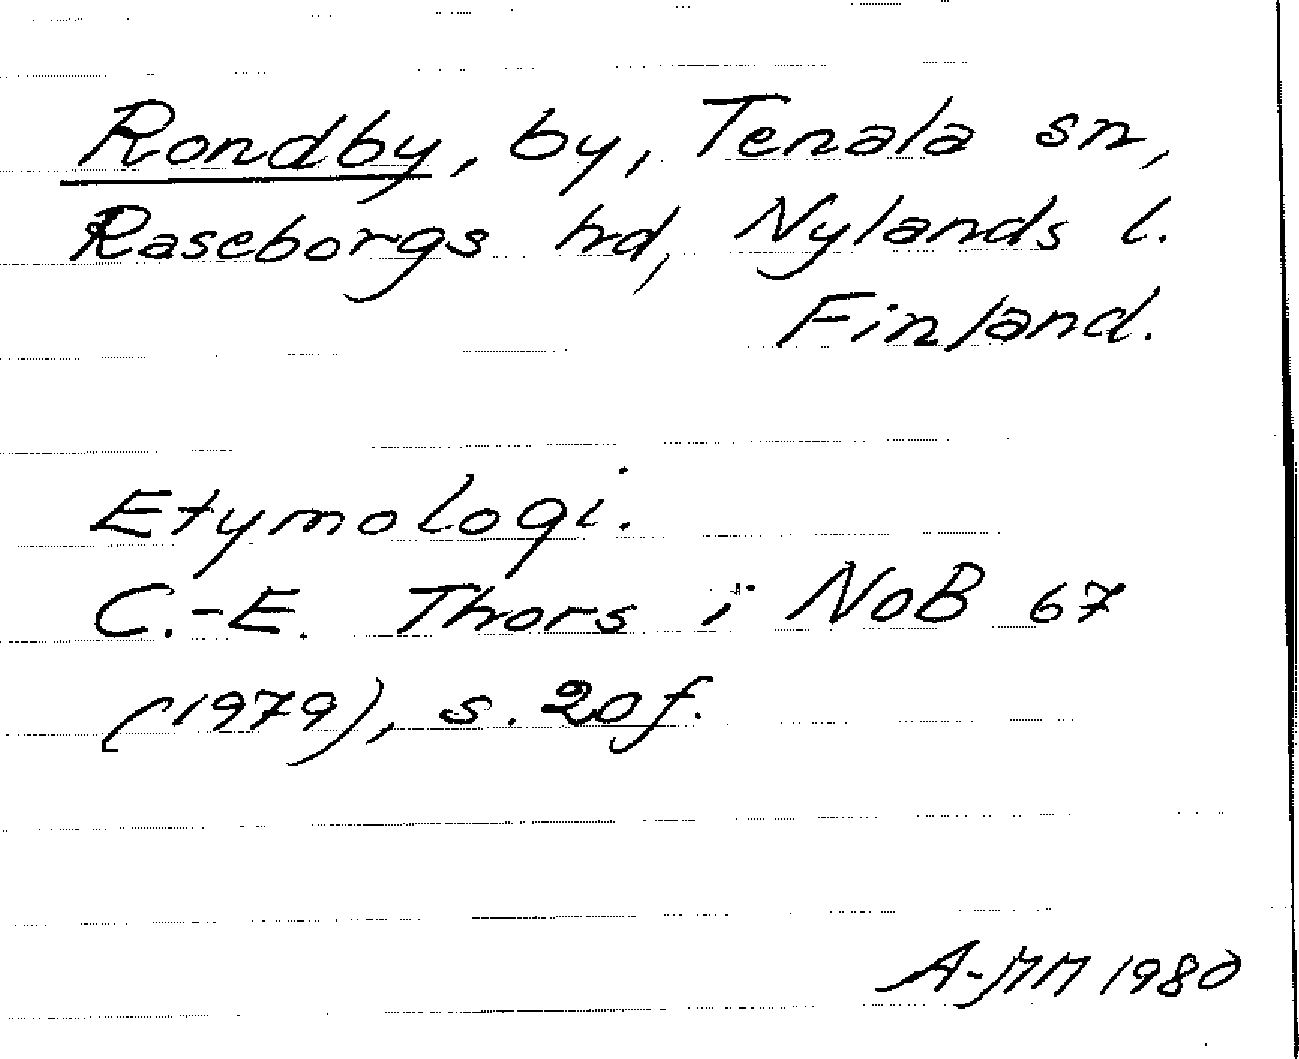 Rondby, by, Tenala sn,
Raseborgs hd, Nylands l.
Finland.
Etymologi.
C.-E. Thors i NoB 67
(1979), s. 20 f.
A-MM 1980